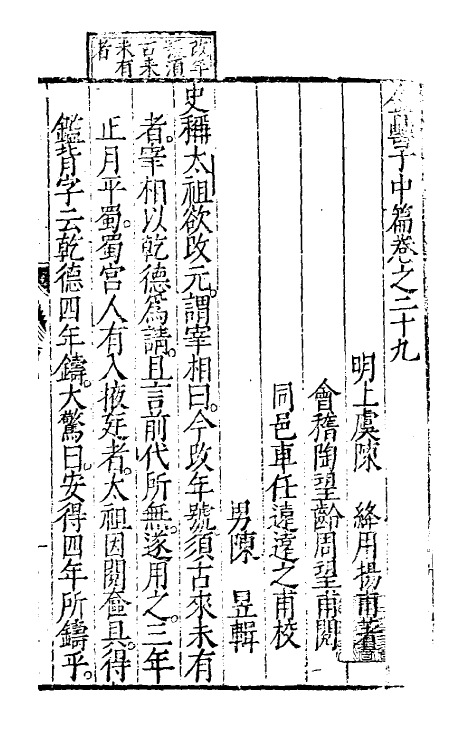 改年
號須
古來
未有
者
金罍子中篇卷之二十九
明上虞陳　絳用揚甫著
會稽陶望齡周望甫閱
同邑車任遠遠之甫校
男陳　昱輯
史稱太祖欲改元。謂宰相曰。今改年號須古來未有
者。宰相以乾德爲請。且言前代所無。遂用之。三年
正月平蜀。蜀宮人有入掖廷者。太祖因閱奩具。得
鑑背字云乾德四年鑄。大驚曰。安得四年所鑄乎。